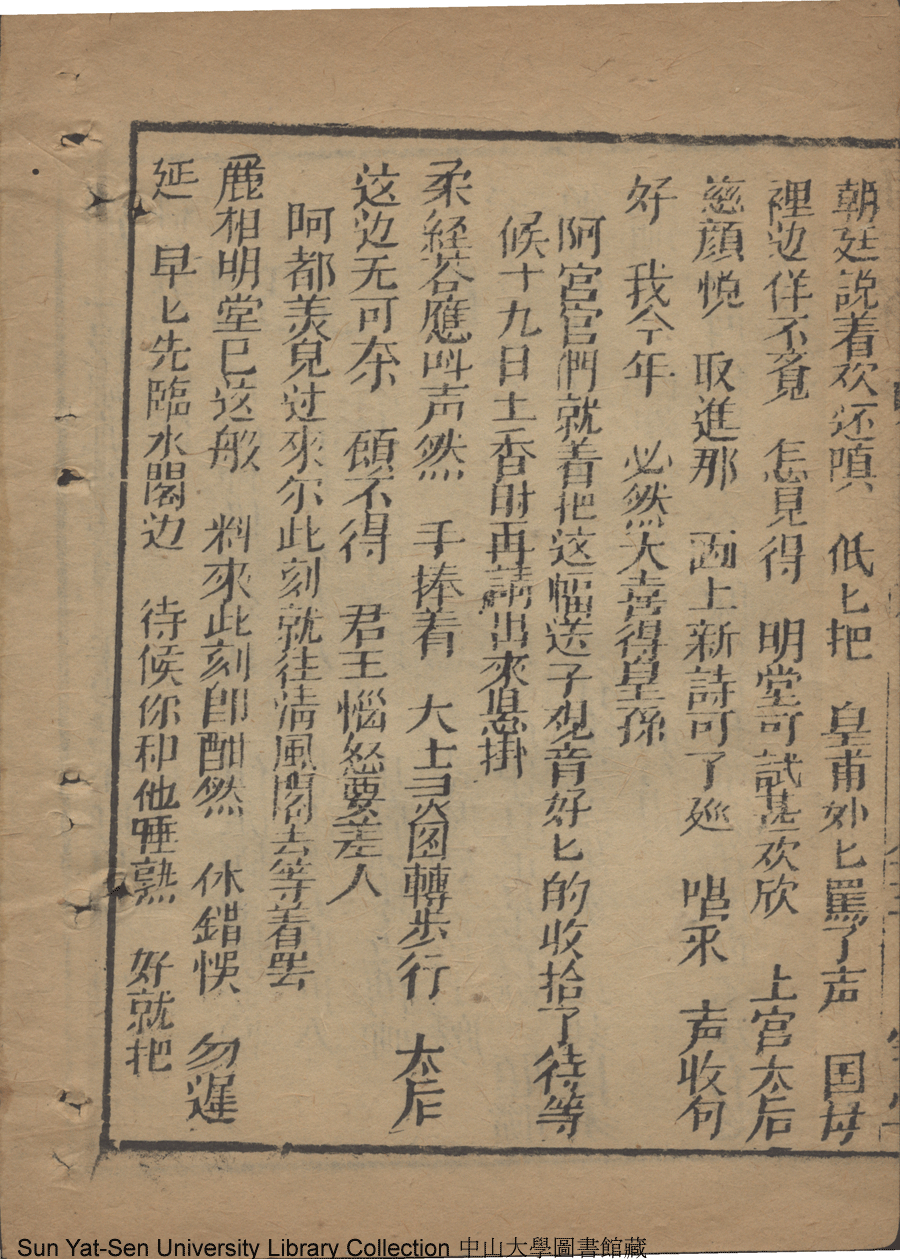 朝廷説着欢还嗔 低匕把 皇甫妙匕罵了声 国母
裡边佯不覔 怎見得 明堂可試甚欢欣 上官太后
慈顔悅 取進那 画上新詩可了 唱采 声收句
好 我今年 必然大喜得皇孫
阿宮官們就着把这幅送子观音好匕的收拾了待等
候十九日土香时再請出來懸掛
柔経荅應呌声然 手捧着 大士灵图轉步行 太后
这边无可奈 顧不得 君王惱怒要差人
呵都美兒过來尔此刻就往清風閣去等着罢
鹿相明堂已这般 料來此刻即酣然 休錯悞 勿遲
延 早匕先臨水閣边 待候你和他睡熟 好就把
Sun Yat-Sen University Library Collection 中山大學圖書館藏